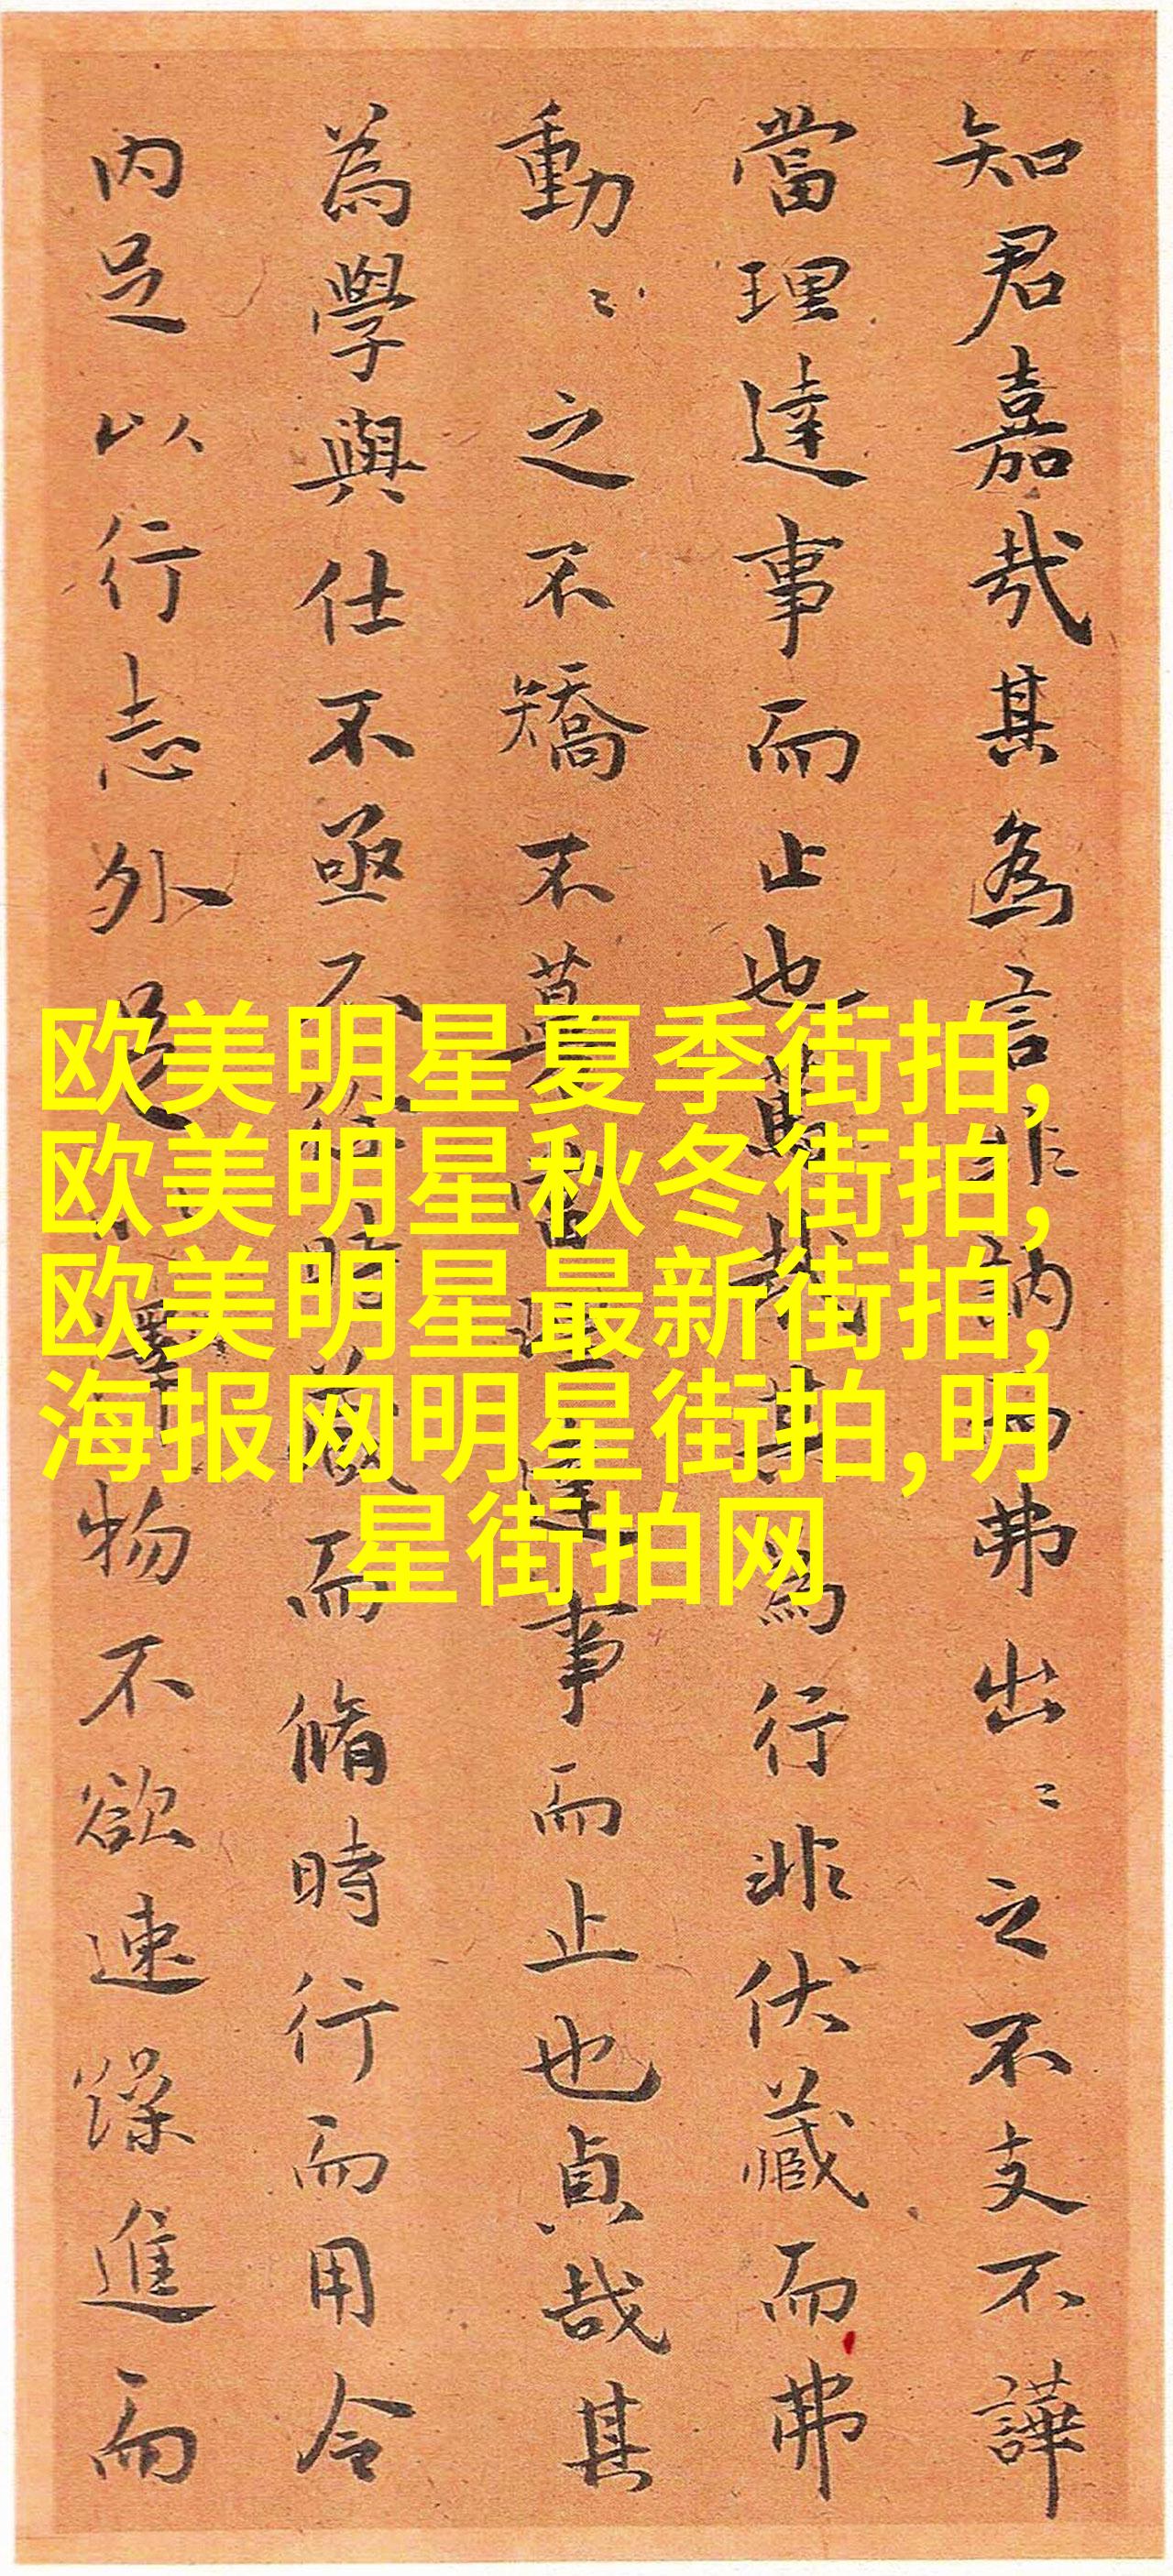 知君嘉哉其為言非訥而弗出〻之不支不譁
當理達事而止也篤哉其為行非伏藏而弗
動〻之不矯不當理達事而止也貞哉其
為學與仕不亟不時藏而脩時行而用令
内足以行志外足澤物不欲速躁進而
欧美明星夏季街拍,
欧美明星秋冬街拍,
欧美明星最新街拍,
海报网明星街拍,明
星街拍网